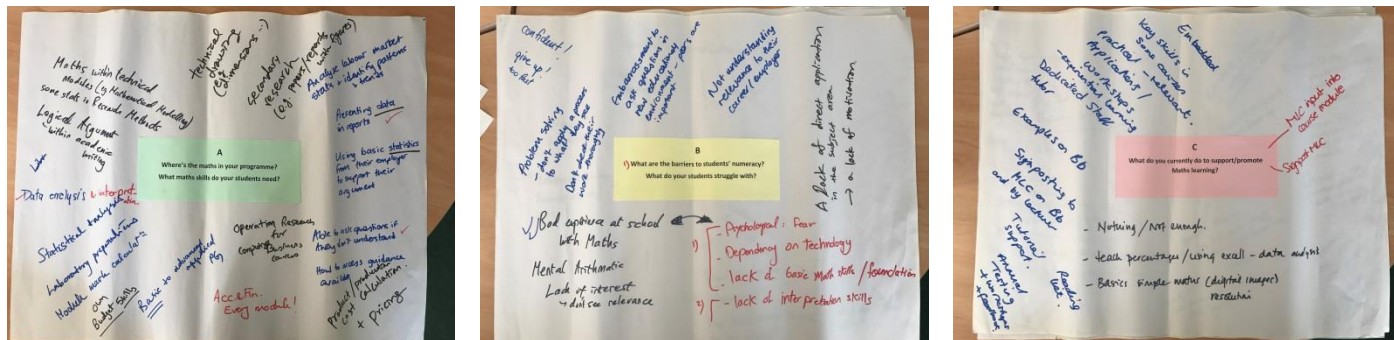 Maths within Technical
Modules (eg Mathematical Modelling)
some stats in Research Methods
Logical Argument
- within academic
writing
technical
drawing
(eg
(dimensions...)
secondary
research
(e.g. papers/reports
with figures)
Analyse labour market
stats + identify patterns
+ trends
Presenting data
in reports
Using basic statistics
from their employer
to support their
argument
A
Where's the maths in your programme?
What maths skills do your students need?
Data analysis & interpretation
Statistical analysis
Laboratory preparations
Module mark calculations
own
Budget skills
Basic to advanced
applied
Operating Research
for
computing
business
courses
Acc & Fin.
Every module!
Able to ask questions if
they don't understand
How to access guidance
available
Product/production
cost calculation.
+ pricing
confident!
give up!
too fast!
Problem solving
- don't apply a process
to what they see
Don't read their
work thoroughly
Embarrassment to
ask question in
new educational
environment - peers are
important
Not understanding
relevance to their
career/employer
A lack of direct application
in the subject area
→ a lack of motivation
B
1) What are the barriers to students' numeracy?
What do your students struggle with?
Bad experience at school
with Maths
Mental Arithmatic
Lack of interest
→ don't see relevance
1)
- Psychological: fear
- Dependency on technology
- lack of basic math skills/foundation
2)
- lack of interpretation skills
Embedded
Key skills in
some courses
Practical - relevant.
Applications!
- workshops
- experiential learning
Dedicated Staff
tutor
Examples on Bb
Signposting to
MLC on Bb
and by lecturer
Tutorial
support.
Reading
list.
Testing
+ workshops
C
What do you currently do to support/promote
Maths learning?
MLC input into
course module
Signpost MLC
- Nothing/Not enough.
- teach percentages/using excell - data analysis
- Basics simple maths (digital images)
resolution